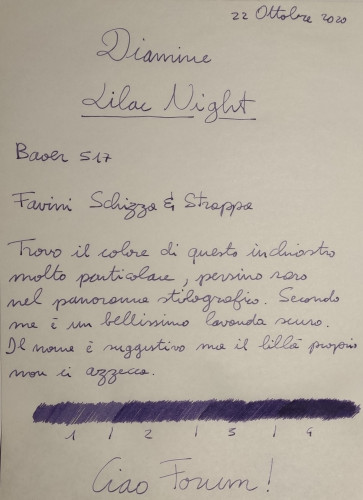 22 Ottobre 2020
Diamine
Lilac Night
Baoer 517
Favini Schizza & Strappa
Trovo il colore di questo inchiostro
molto particolare, persino raro
nel panorama stilografico. Secondo
me è un bellissimo lavanda scuro.
Il nome è suggestivo ma il lillà proprio
non ci azzecca.
1 / 2 / 3 / 4
Ciao Forum!